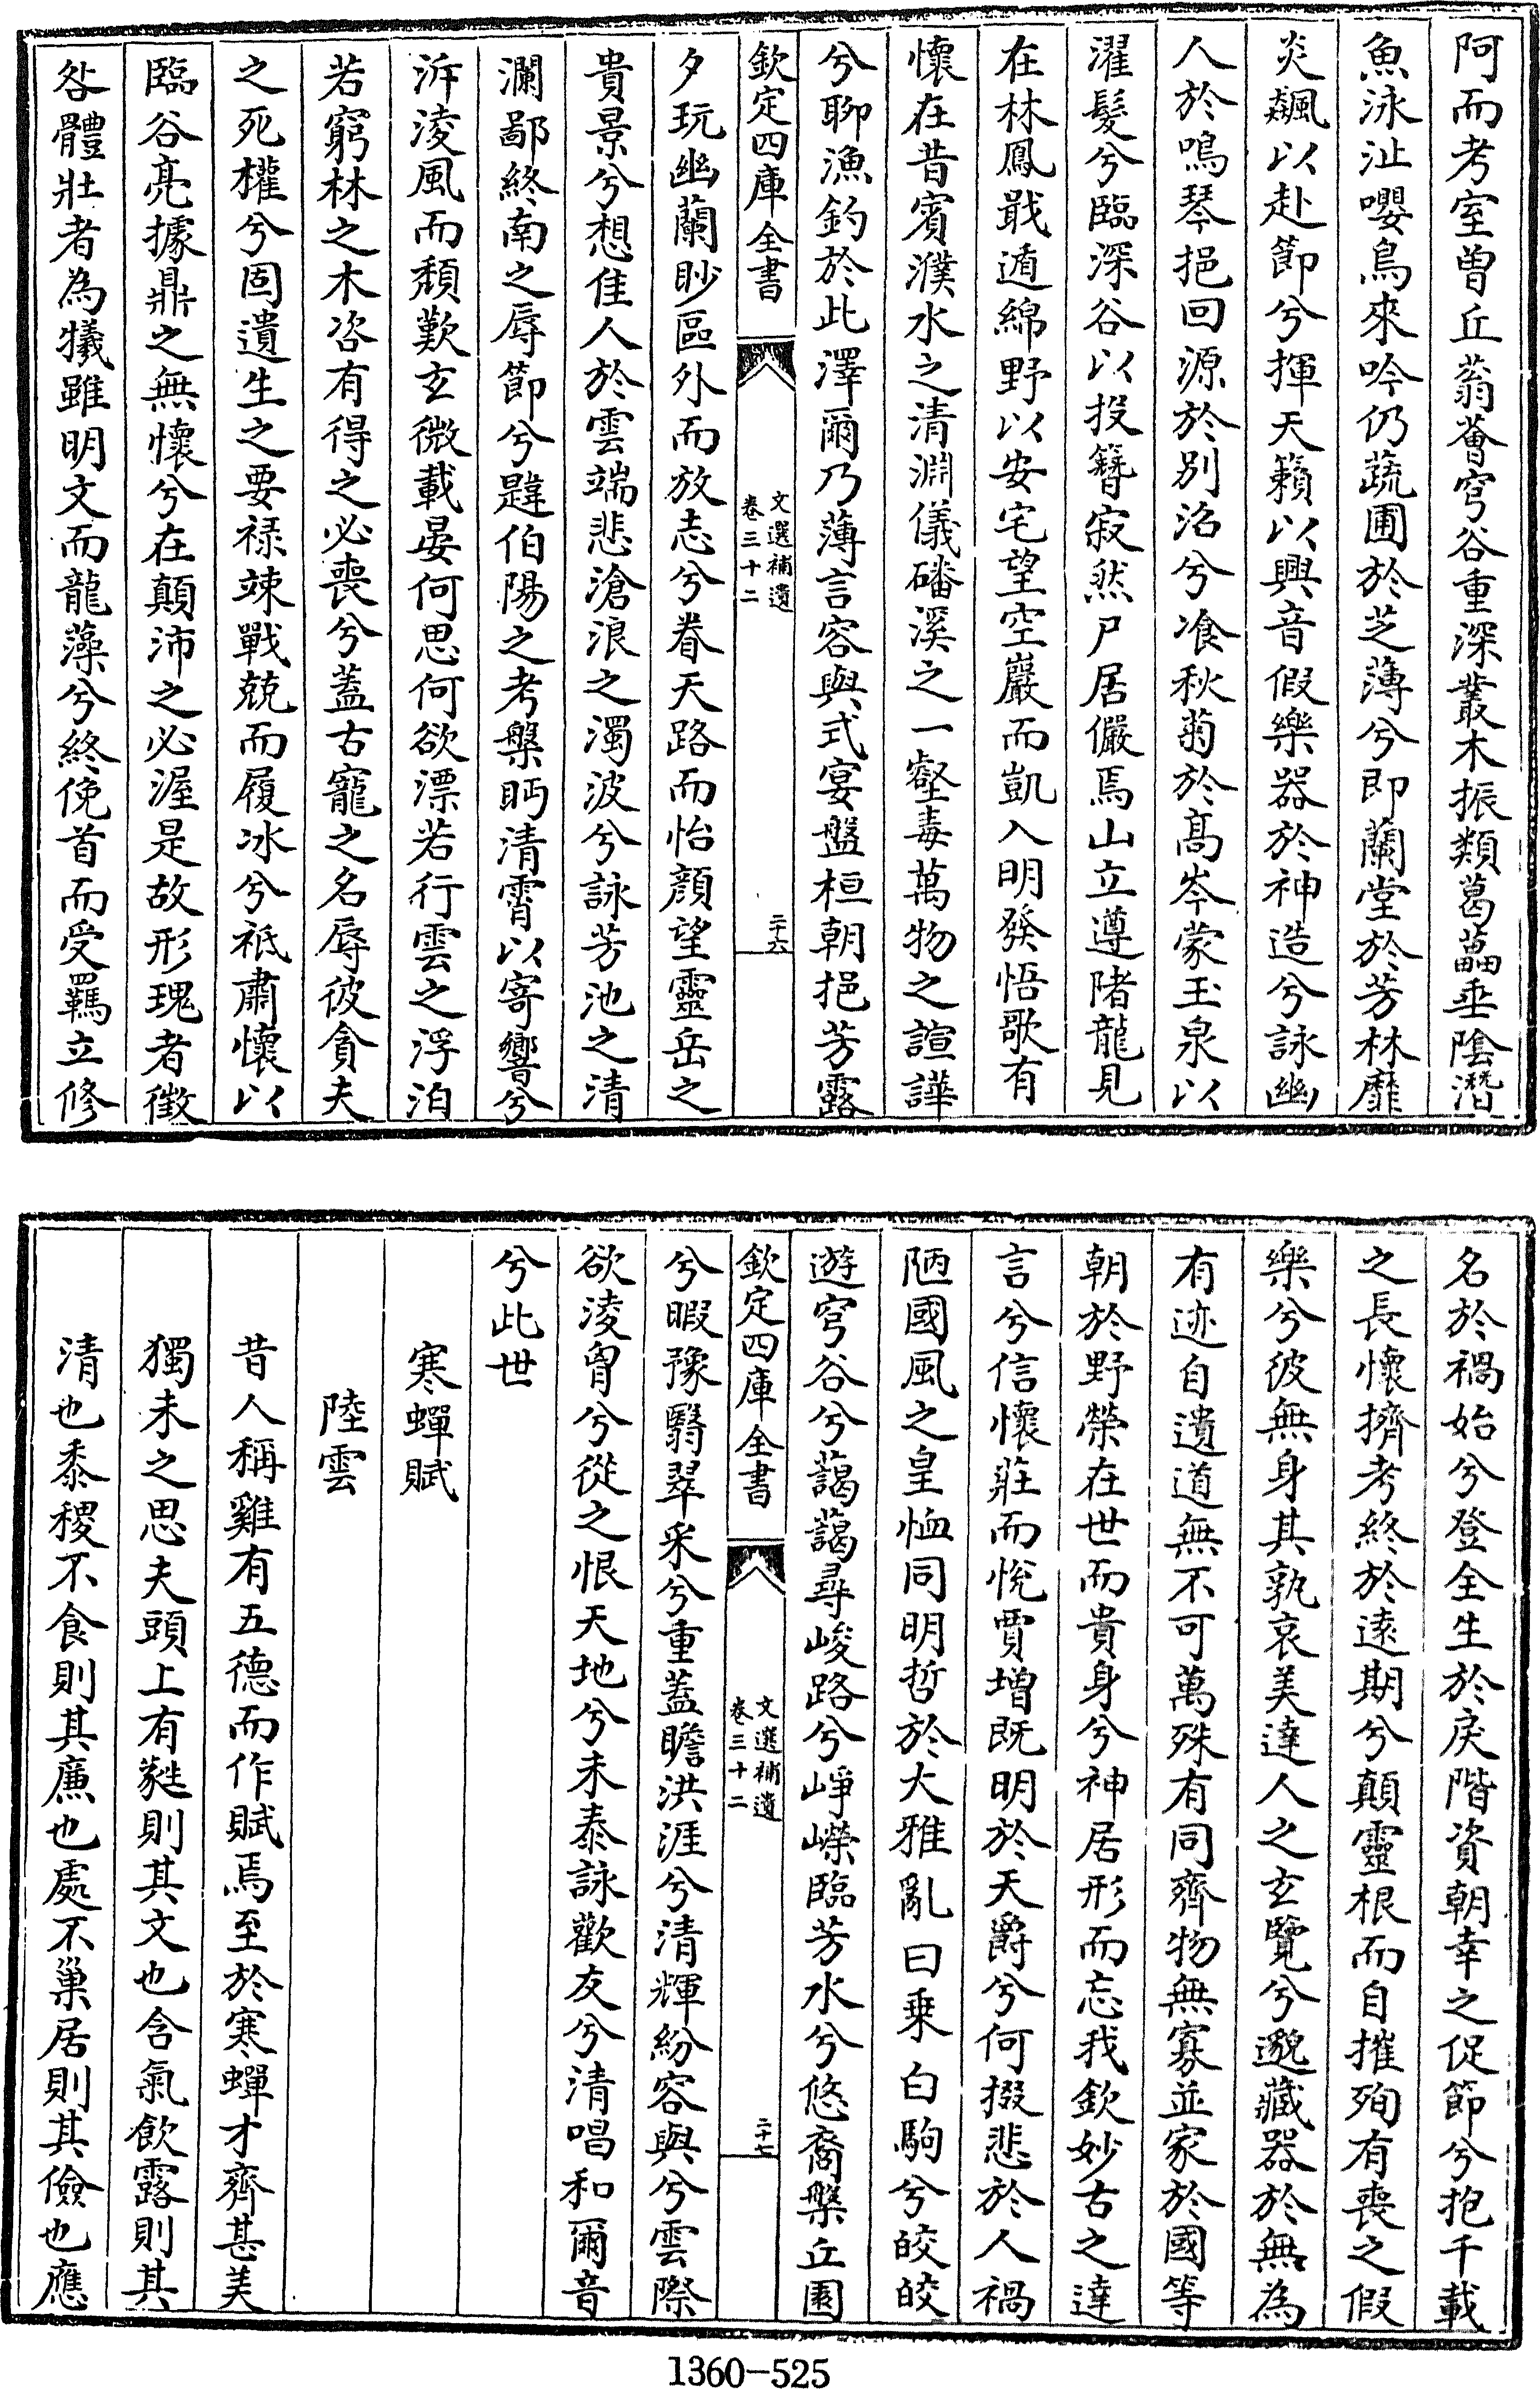 阿而考室曽丘蓊薈穹谷重深叢木振類葛藟垂陰潛
魚泳沚嚶鳥來吟仍蔬圃於芝薄兮即蘭堂於芳林靡
炎飈以赴節兮揮天籟以興音假樂器於神造兮詠幽
人於鳴琴挹回源於別沼兮飡秋菊於髙岑蒙玉泉以
濯髮兮臨深谷以投簪寂然尸居儼焉山立遵陼龍見
在林鳳戢遁綿野以安宅望空巖而凱入明發悟歌有
懷在昔賓濮水之清淵儀磻溪之一壑毒萬物之諠譁
兮聊漁釣於此澤爾乃薄言容與式宴盤桓朝挹芳露
欽定四庫全書
文選補遺
卷三十二
二十六
夕玩幽蘭眇區外而放志兮眷天路而怡顔望靈岳之
貴景兮想佳人於雲端悲滄浪之濁波兮詠芳池之清
瀾鄙終南之辱節兮韙伯陽之考槃眄清霄以寄響兮
泝淩風而頽歎玄微載晏何思何欲漂若行雲之浮泊
若窮林之木咨有得之必喪兮蓋古寵之名辱彼貪夫
之死權兮固遺生之要禄竦戰兢而履冰兮祗肅懷以
臨谷亮據鼎之無懷兮在顛沛之必渥是故形瑰者徴
咎體壯者為犧雖明文而龍藻兮終俛首而受羈立修
名於禍始兮登全生於戾階資朝幸之促節兮抱千載
之長懷擠考終於逺期兮顛靈根而自摧殉有喪之假
樂兮彼無身其孰哀美達人之玄覽兮邈藏器於無為
有迹自遺道無不可萬殊有同齊物無寡並家於國等
朝於野榮在世而貴身兮神居形而忘我欽妙古之達
言兮信懷莊而悅賈增既明於天爵兮何掇悲於人禍
陋國風之皇恤同明哲於大雅亂曰乗白駒兮皎皎
遊穹谷兮藹藹尋峻路兮崢嶸臨芳水兮悠裔槃丘園
欽定四庫全書
文選補遺
卷三十二
二十七
兮暇豫翳翠采兮重蓋瞻洪涯兮清輝紛容與兮雲際
欲淩冑兮從之恨天地兮未泰詠歡友兮清唱和爾音
兮此世
寒蟬賦
陸雲
昔人稱雞有五德而作賦焉至於寒蟬才齊甚美
獨未之思夫頭上有蕤則其文也含氣飲露則其
清也黍稷不食則其廉也處不巢居則其儉也應
1360-525